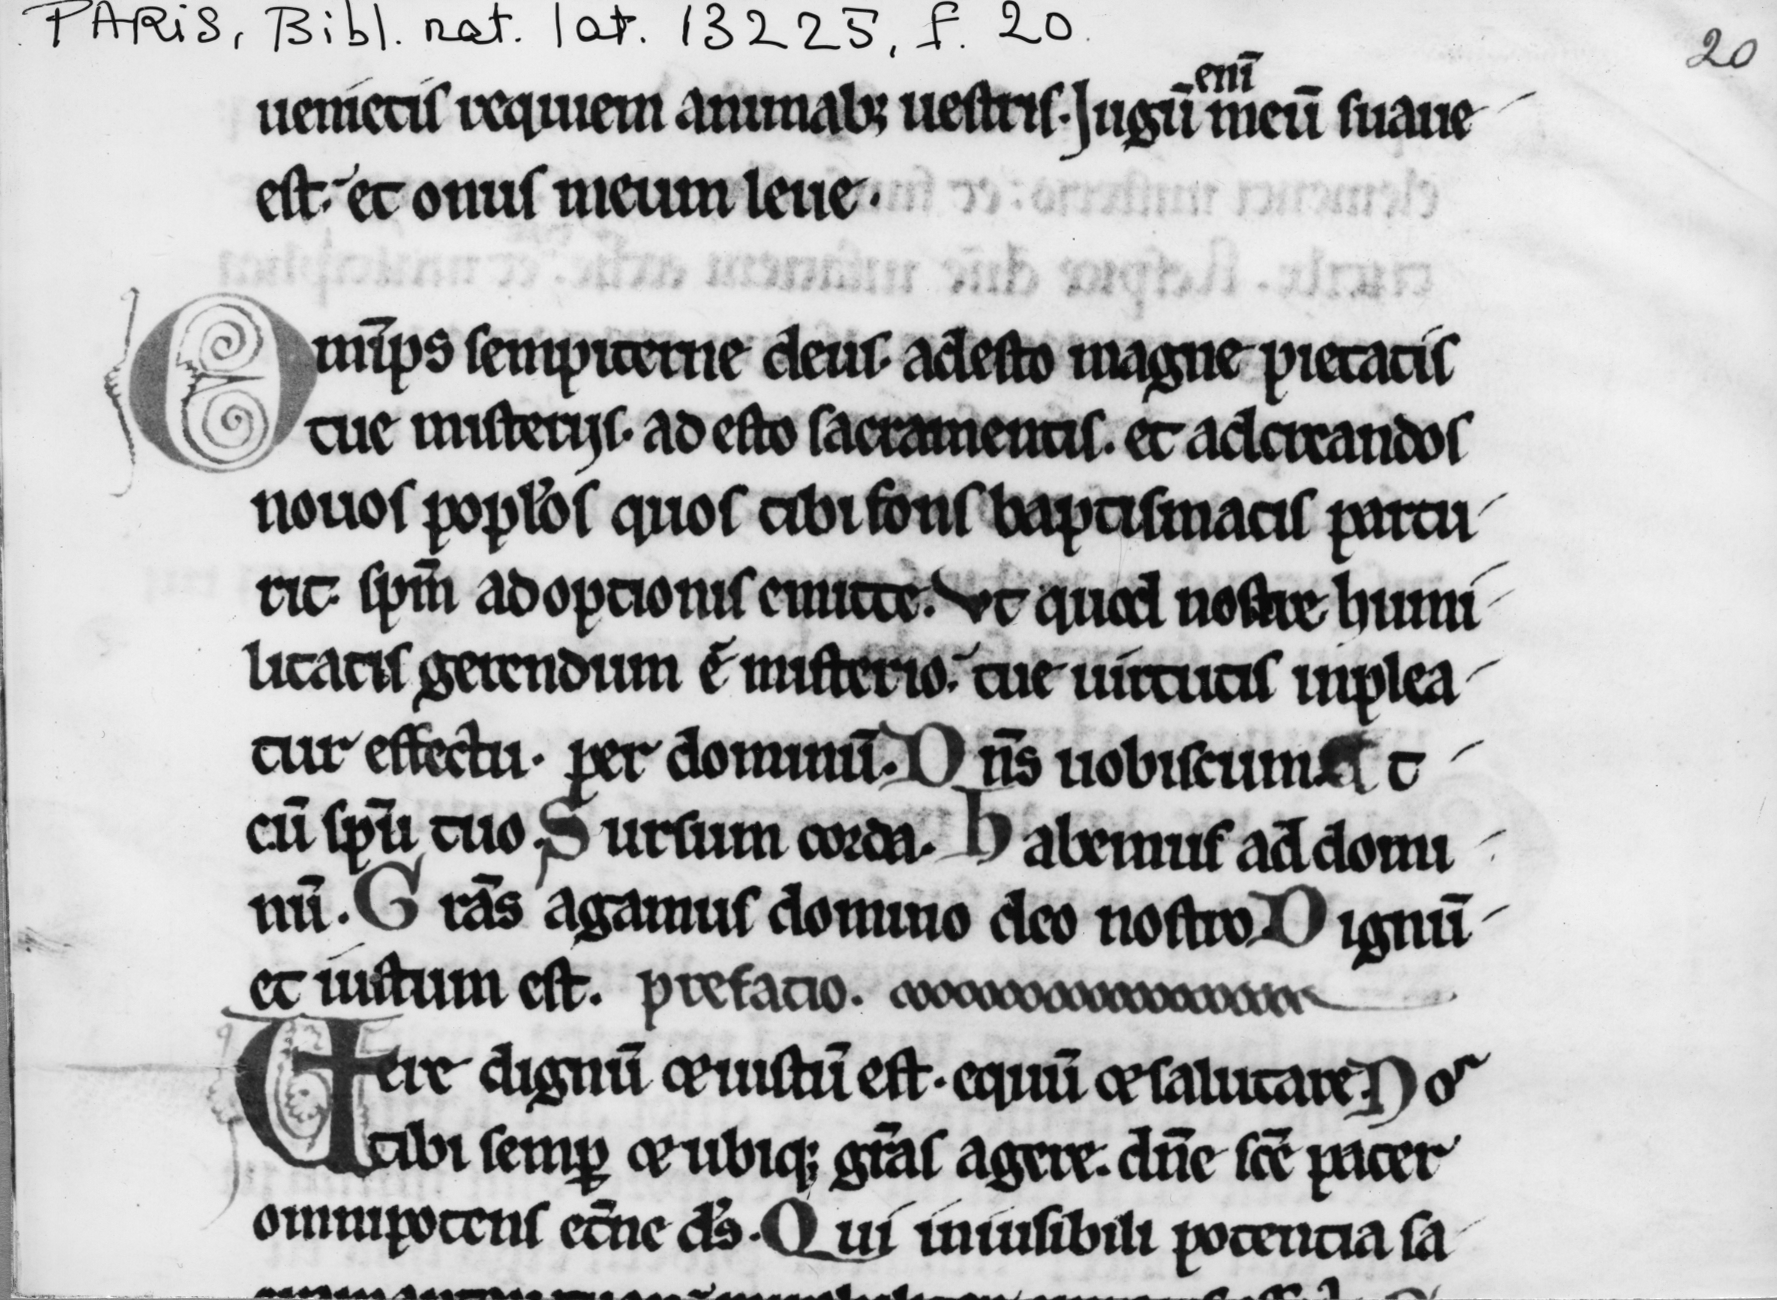 PARIS, Bibl. nat. lat. 13225, f. 20.
20
enī
uenietis requiem animab; uestris. Jugū meū suaue
est: et onus meum leue.
Omīps sempiterne deus. adesto magne pietatis
tue misterijs. ad esto sacramentis. et adcreandos
nouos popl'os quos tibi fons baptismatis partu
rit. spm̄ adoptionis emitte. Vt quod nostre humi
litatis gerendum ē misterio. tue uirtutis inplea
tur effectu. per dominū. Dn̄s uobiscum. Et
cū spū tuo. Sursum corda. Habemus ad domi
nū. Grās agamus domino deo nostro. Dignū
et iustum est. prefatio.
Vere dignū & iustū est. equū & salutare. Nos
tibi semp̱ & ubiq; grās agere. dn̄e scē pater
omnipotens et̄ne ds. Qui inuisibili potentia sa